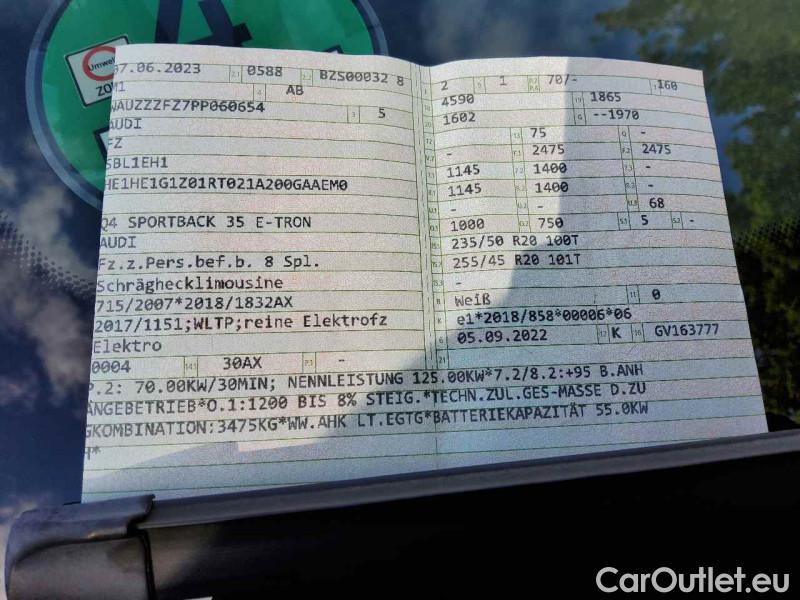 4
Umwelt
ZONE
07.06.2023 2.1 0588 2.2 BZS00032 8
M1 4 AB
WAUZZZFZ7PP060654 3 5
AUDI
FZ
5BL1EH1
HE1HE1G1Z01RT021A200GAAEM0
Q4 SPORTBACK 35 E-TRON
AUDI
Fz.z.Pers.bef.b. 8 Spl.
Schräghecklimousine
715/2007*2018/1832AX
2017/1151;WLTP;reine Elektrofz
Elektro
0004 14.1 30AX P.1 -
2 1 70/- 160
4590 19 1865
1602 G --1970
75 Q -
- 2475 2475
1145 1400 -
1145 1400 -
- - 68
1000 750 5 -
235/50 R20 100T
255/45 R20 101T
-
R Weiß 11 0
K e1*2018/858*00006*06
6 05.09.2022 17 K 16 GV163777
21
P.2: 70.00KW/30MIN; NENNLEISTUNG 125.00KW*7.2/8.2:+95 B.ANH
ÄNGEBETRIEB*O.1:1200 BIS 8% STEIG.*TECHN.ZUL.GES-MASSE D.ZU
GKOMBINATION:3475KG*WW.AHK LT.EGTG*BATTERIEKAPAZITÄT 55.0KW
H*
CarOutlet.eu